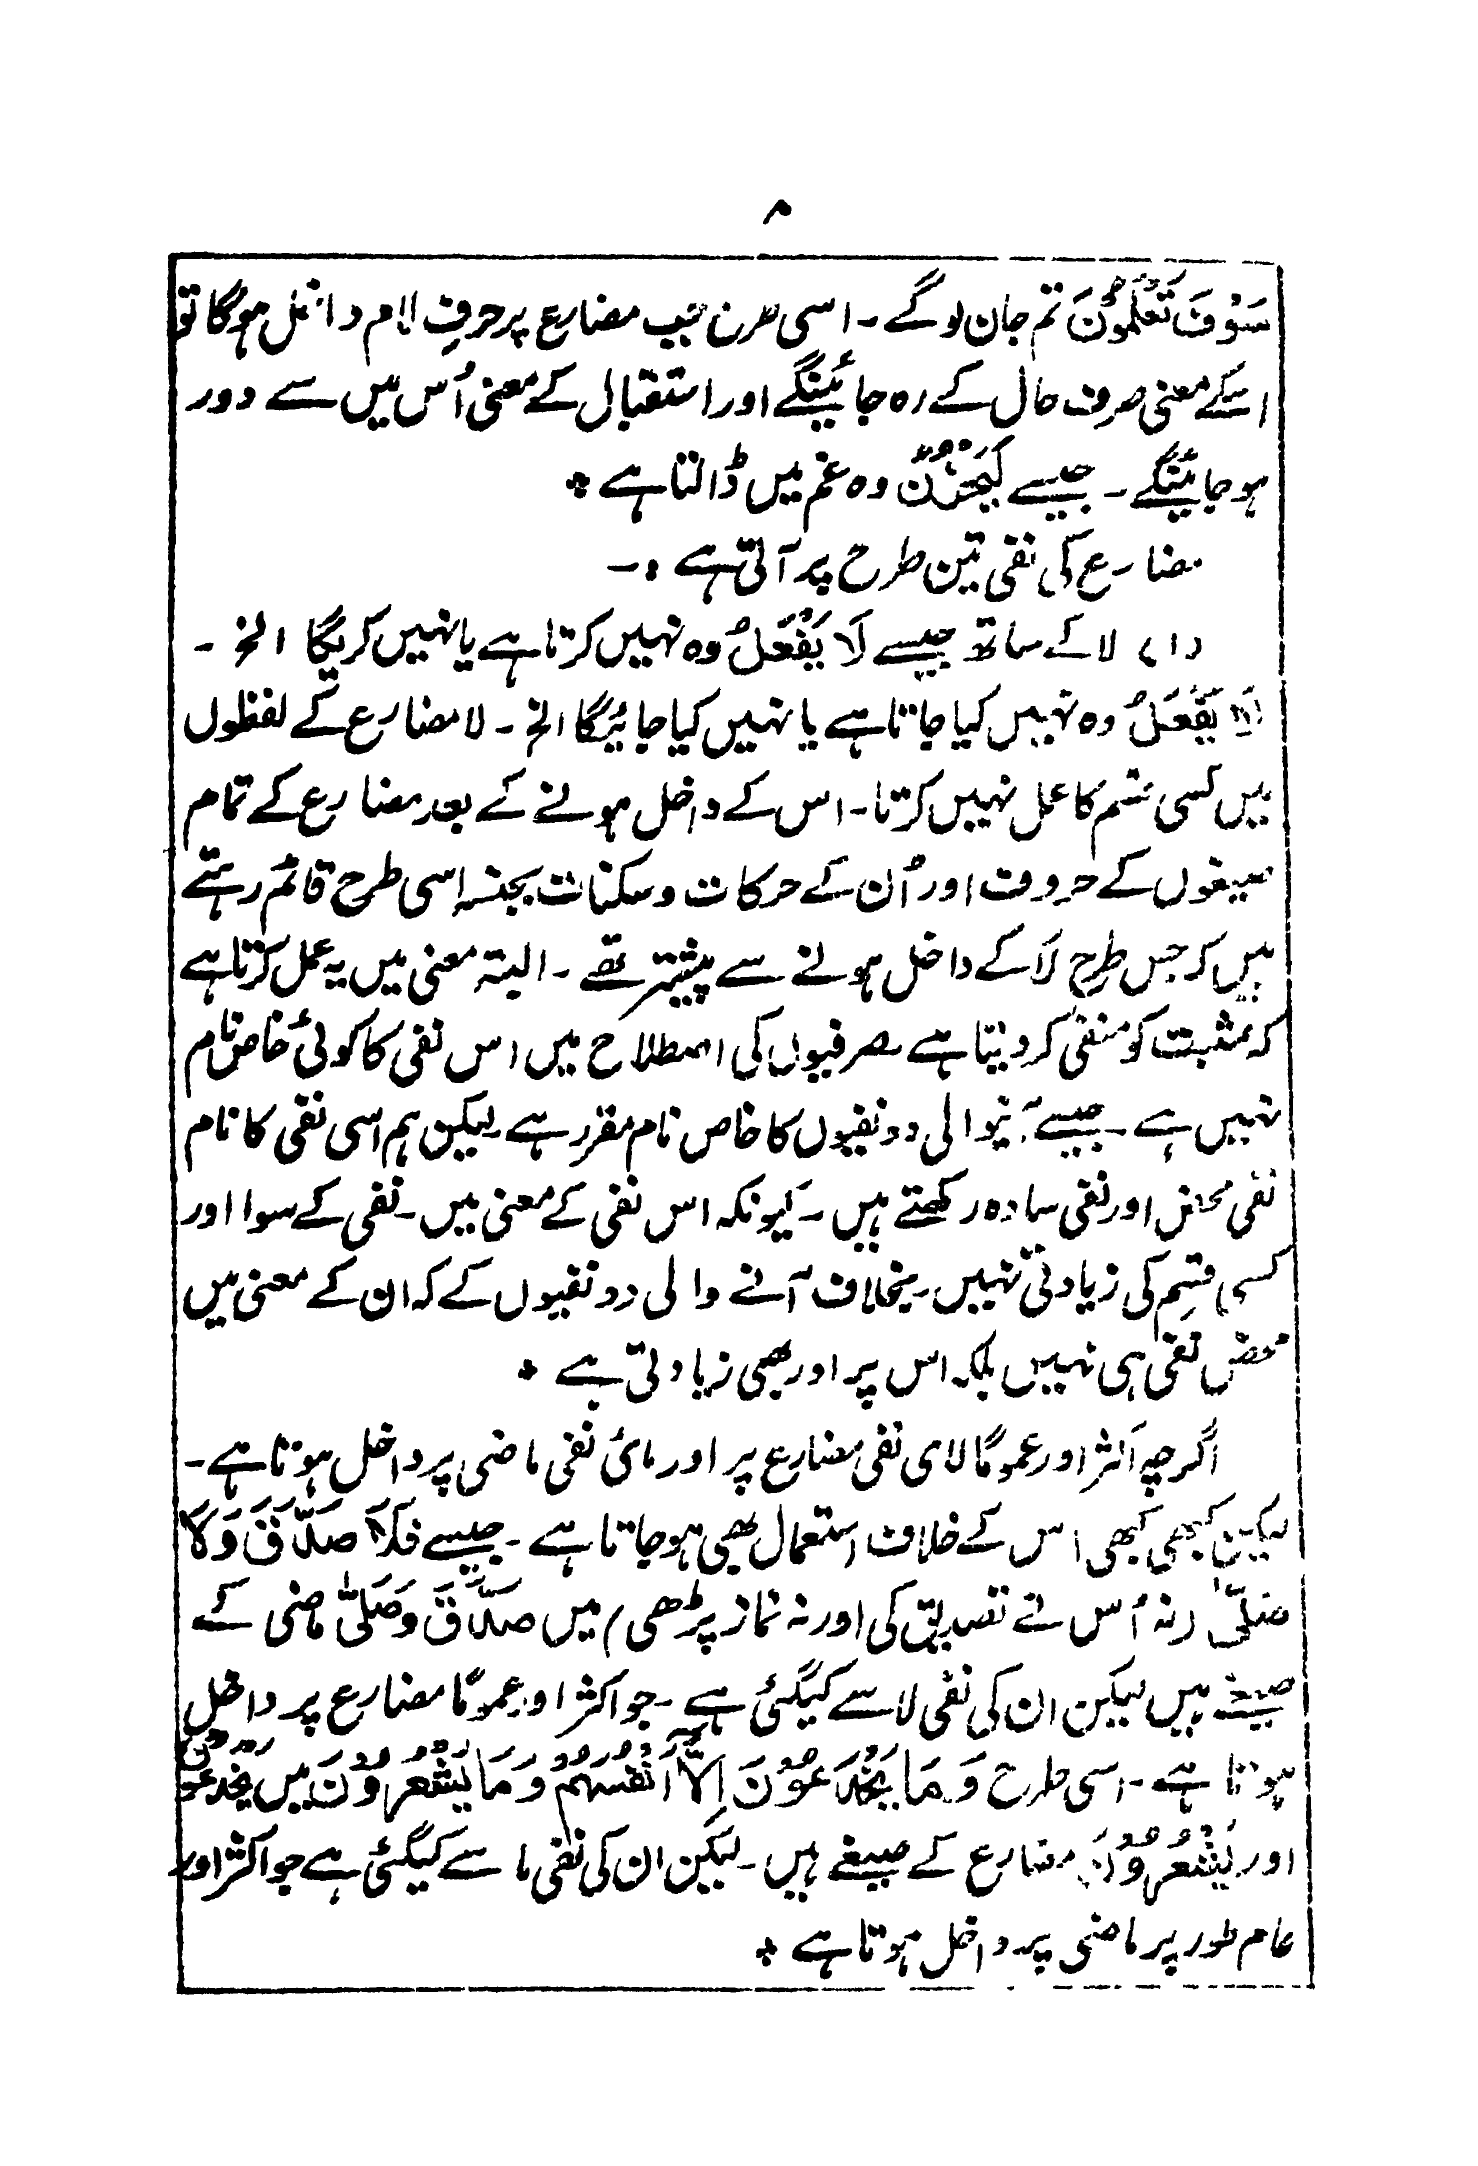 ۸
سَوْفَ تَعْلَمُوْنَ تم جان لوگے۔ اسی طرح جب مضارع پر حرفِ لام داخل ہوگا تو
اسکے معنی صرف حال کے رہ جائینگے اور استقبال کے معنی اُس میں سے دور
ہوجائینگے۔ جیسے لَیَحْزُنُ وہ غم میں ڈالتا ہے ٭
مضارع کی نفی تین طرح پر آتی ہے :۔
(۱) لا کے ساتھ جیسے لَا یَفْعَلُ وہ نہیں کرتا ہے یا نہیں کریگا الخ۔
لَا یُفْعَلُ وہ نہیں کیا جاتا ہے یا نہیں کیا جائیگا الخ۔ لا مضارع کے لفظوں
میں کسی قسم کا عمل نہیں کرتا۔ اس کے داخل ہونے کے بعد مضارع کے تمام
صیغوں کے حروف اور اُن کے حرکات و سکنات بجنسہٖ اسی طرح قائم رہتے
ہیں کہ جس طرح لَا کے داخل ہونے سے پیشتر تھے۔ البتہ معنی میں یہ عمل کرتا ہے
کہ مثبت کو منفی کر دیتا ہے صرفیوں کی اصطلاح میں اس نفی کا کوئی خاص نام
نہیں ہے۔ جیسے آنیوالی دو نفیوں کا خاص نام مقرر ہے۔ لیکن ہم اسی نفی کا نام
نفی محض اور نفی سادہ رکھتے ہیں۔ کیونکہ اس نفی کے معنی میں۔ نفی کے سوا اور
کسی قسم کی زیادتی نہیں۔ بخلاف آنے والی دو نفیوں کے کہ ان کے معنی میں
محض نفی ہی نہیں بلکہ اس پر اور بھی زیادتی ہے ٭
اگرچہ اکثر اور عموماً لای نفی مضارع پر اور مائ نفی ماضی پر داخل ہوتا ہے۔
لیکن کبھی کبھی اس کے خلاف استعمال بھی ہوجاتا ہے۔ جیسے فَلَا صَدَّقَ وَلَا
صَلّٰی (نہ اُس نے تصدیق کی اور نہ نماز پڑھی) میں صَدَّقَ وَصَلّٰی ماضی کے
صیغے ہیں لیکن ان کی نفی لا سے کیگئی ہے۔ جو اکثر اور عموماً مضارع پر داخل
ہوتا ہے۔ اسی طرح وَمَا یَخْدَعُوْنَ اِلَّآ اَنْفُسَهُمْ وَمَا یَشْعُرُوْنَ میں یَخْدَعُوْنَ
اور یَشْعُرُوْنَ مضارع کے صیغے ہیں۔ لیکن ان کی نفی ما سے کیگئی ہے جو اکثر اور
عام طور پر ماضی پر داخل ہوتا ہے ٭